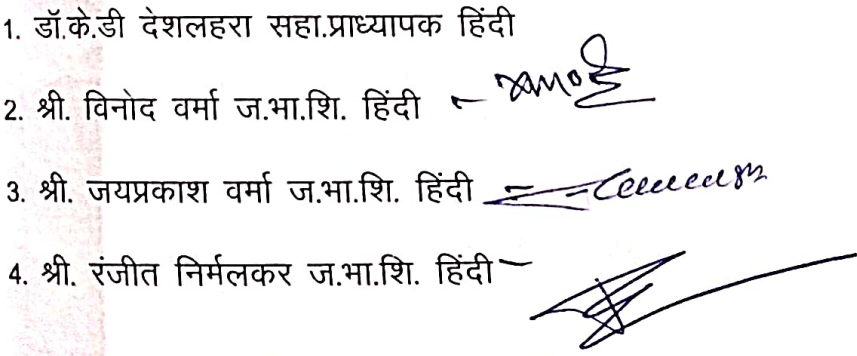 1. डॉ.के.डी देशलहरा सहा.प्राध्यापक हिंदी
2. श्री. विनोद वर्मा ज.भा.शि. हिंदी -
3. श्री. जयप्रकाश वर्मा ज.भा.शि. हिंदी
4. श्री. रंजीत निर्मलकर ज.भा.शि. हिंदी -